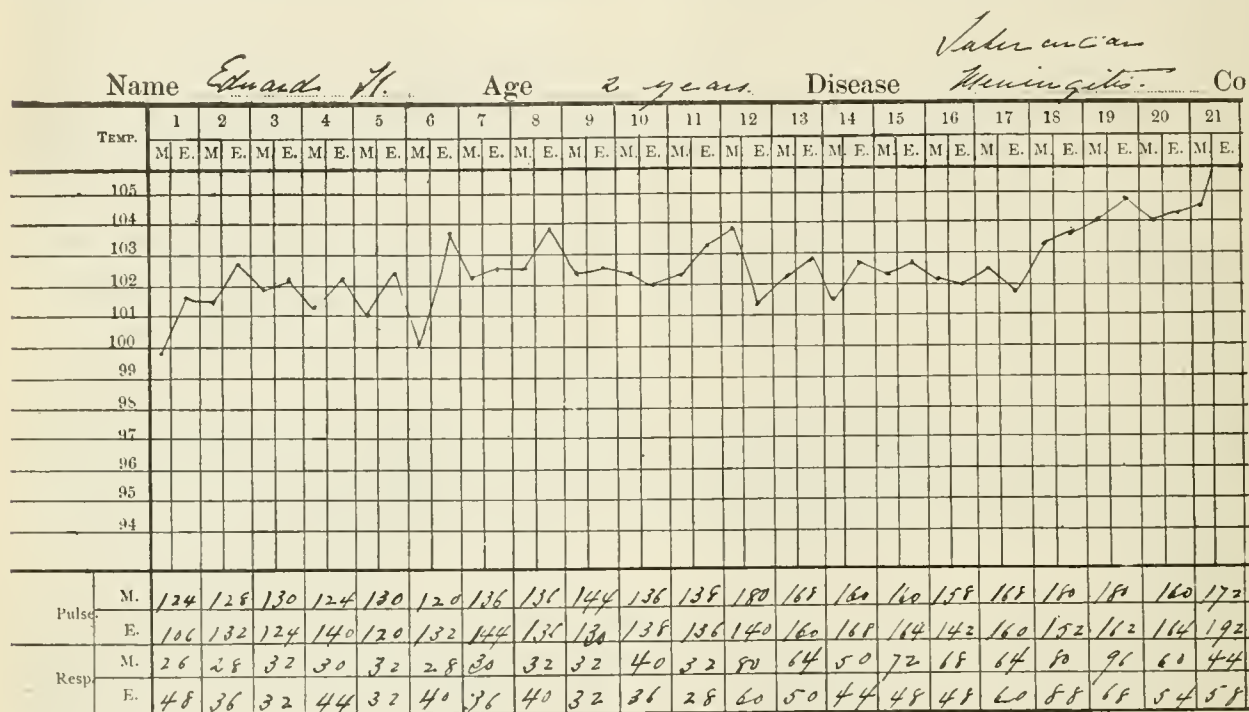 Name Edward H. Age 2 years. Disease Tubercular Meningitis. Co
TEMP. 1 2 3 4 5 6 7 8 9 10 11 12 13 14 15 16 17 18 19 20 21
M. E. M. E. M. E. M. E. M. E. M. E. M. E. M. E. M. E. M. E. M. E. M. E. M. E. M. E. M. E. M. E. M. E. M. E. M. E. M. E. M. E.
105
104
103
102
101
100
99
98
97
96
95
94
Pulse. M. 124 128 130 124 130 120 136 136 144 136 138 180 168 160 160 158 168 180 180 160 172
E. 106 132 124 140 120 132 144 136 130 138 136 140 160 168 164 142 160 152 162 164 192
Resp. M. 26 28 32 30 32 28 30 32 32 40 32 80 64 50 72 68 64 80 96 60 44
E. 48 36 32 44 32 40 36 40 32 36 28 60 50 44 48 48 60 88 68 54 58